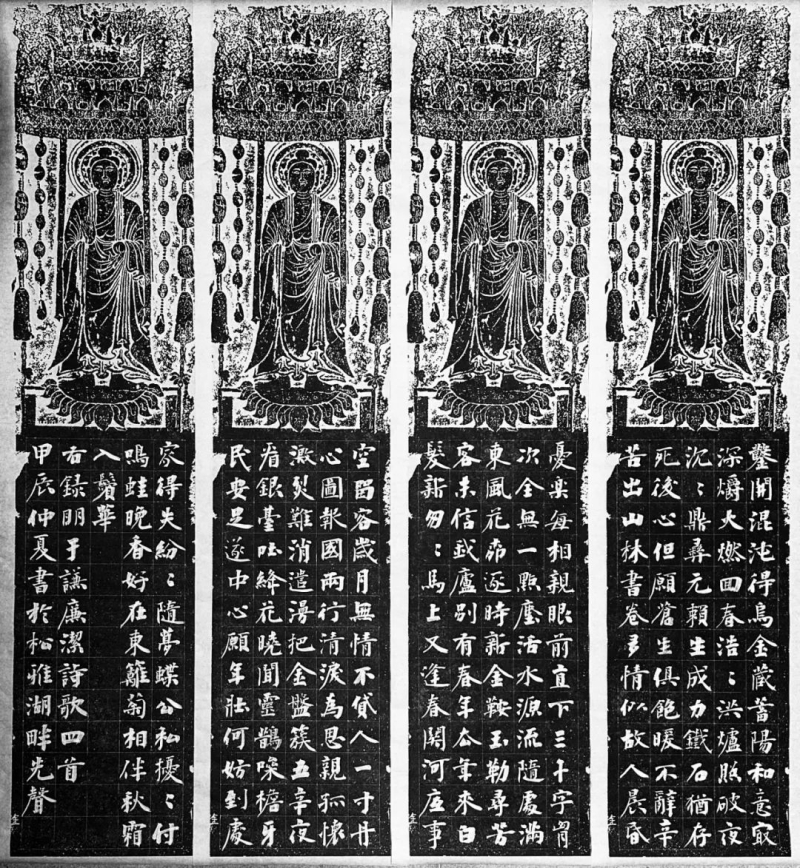 鑿開混沌得烏金藏蓄陽和意㝡
深爝火燃囬春浩〻洪爐照破夜
沉〻鼎彝元賴生成力鐵石猶存
死後心但願蒼生俱飽暖不辭辛
苦出山林書卷多情似故人晨昏
憂樂每相親眼前直下三千字胷
次全無一點塵活水源流隨處滿
東風花柳逐時新金鞍玉勒尋芳
客未信我廬別有春年去年來白
髮新匆〻馬上又逢春關河底事
空留客歲月無情不貸人一寸丹
心圖報國兩行清淚為思親孤懷
激烈難消遣漫把金盤簇五辛夜
看銀臺吐絳花曉聞靈鵲噪檐牙
民安足遂中心願年壯何妨到處
家得失紛〻隨夢蝶公私擾〻付
鳴蛙晚香好在東籬菊相伴秋霜
入鬢華
右錄明于謙廉潔詩歌四首
甲辰仲夏書於松雅湖畔先聲